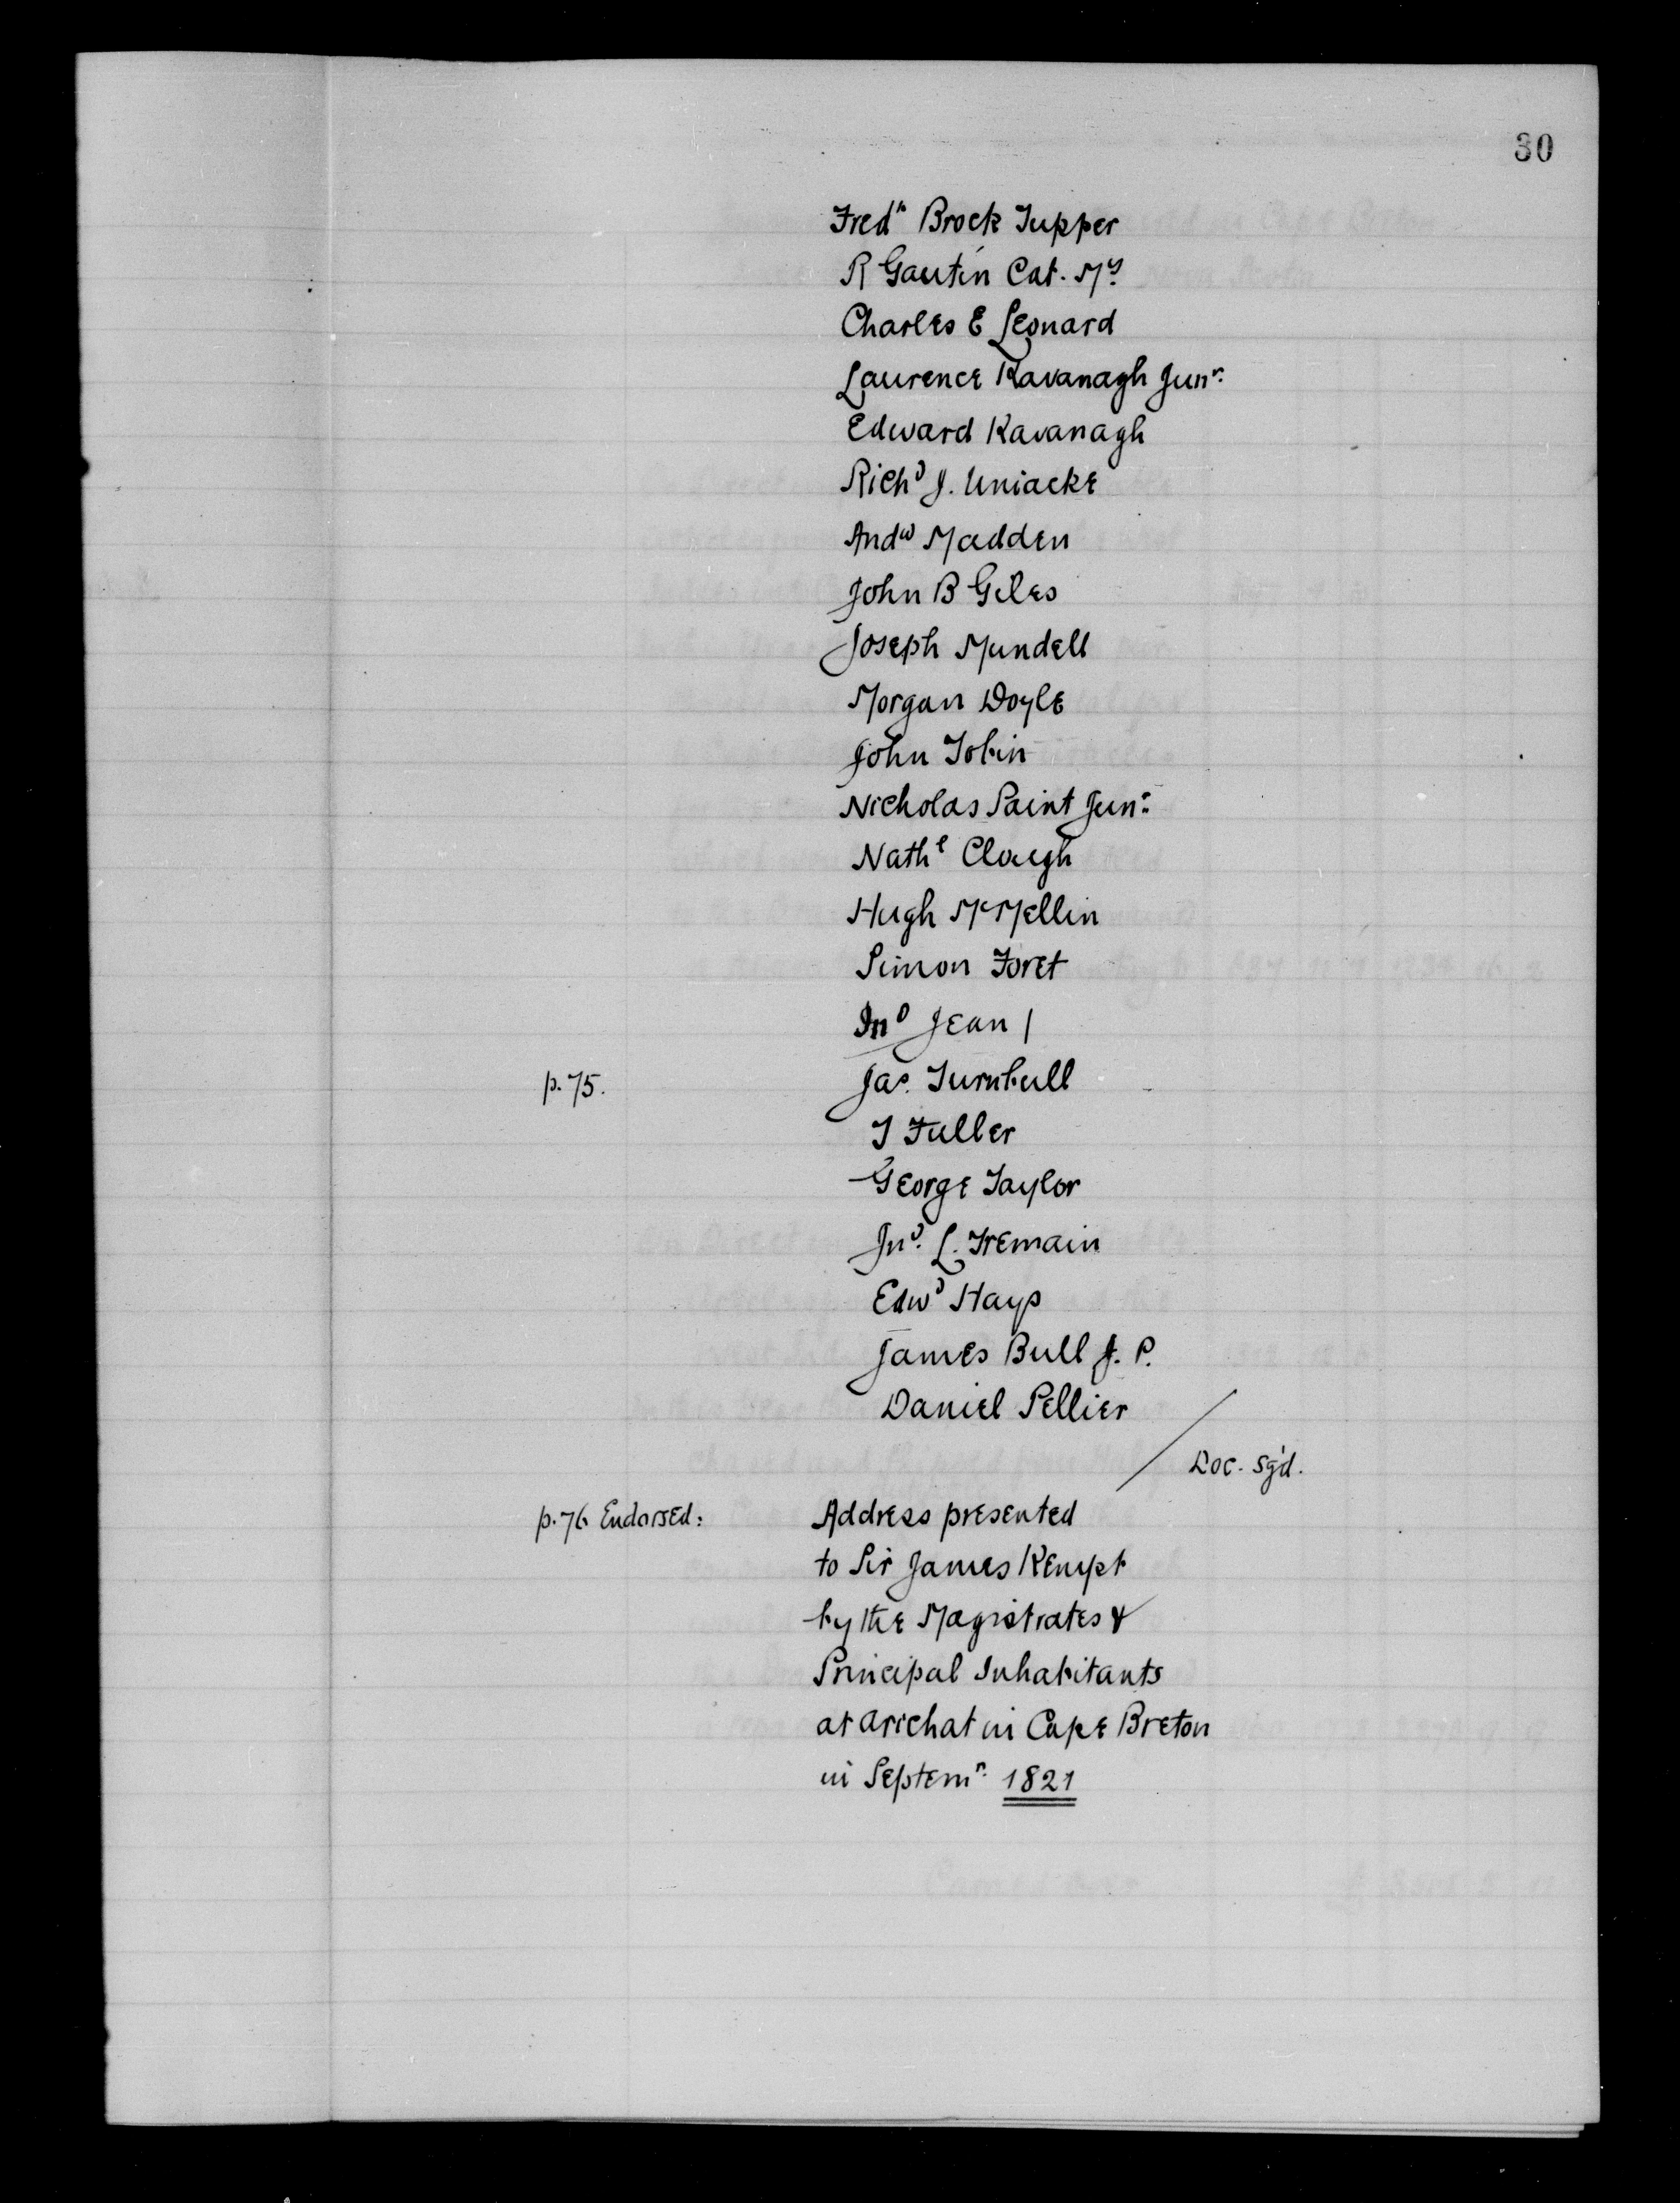 30
Fredk Brock Tupper
R Gautin Cat. My.
Charles E Leonard
Laurence Kavanagh Junr.
Edward Kavanagh
Richd J. Uniacke
Andw Madden
John B Giles
Joseph Mundell
Morgan Doyle
John Tobin
Nicholas Paint Junr.
Nathl Clough
Hugh McMellin
Simon Foret
Jno Jean /
p. 75. Jas. Turnbull
T Fuller
George Taylor
Jno. L. Tremain
Edwd Hays
James Bull J. P.
Daniel Pellier
Doc. sg'd.
p. 76 Endorsed: Address presented
to Sir James Kempt
by the Magistrates &
Principal Inhabitants
at Arichat in Cape Breton
in Septemr. 1821